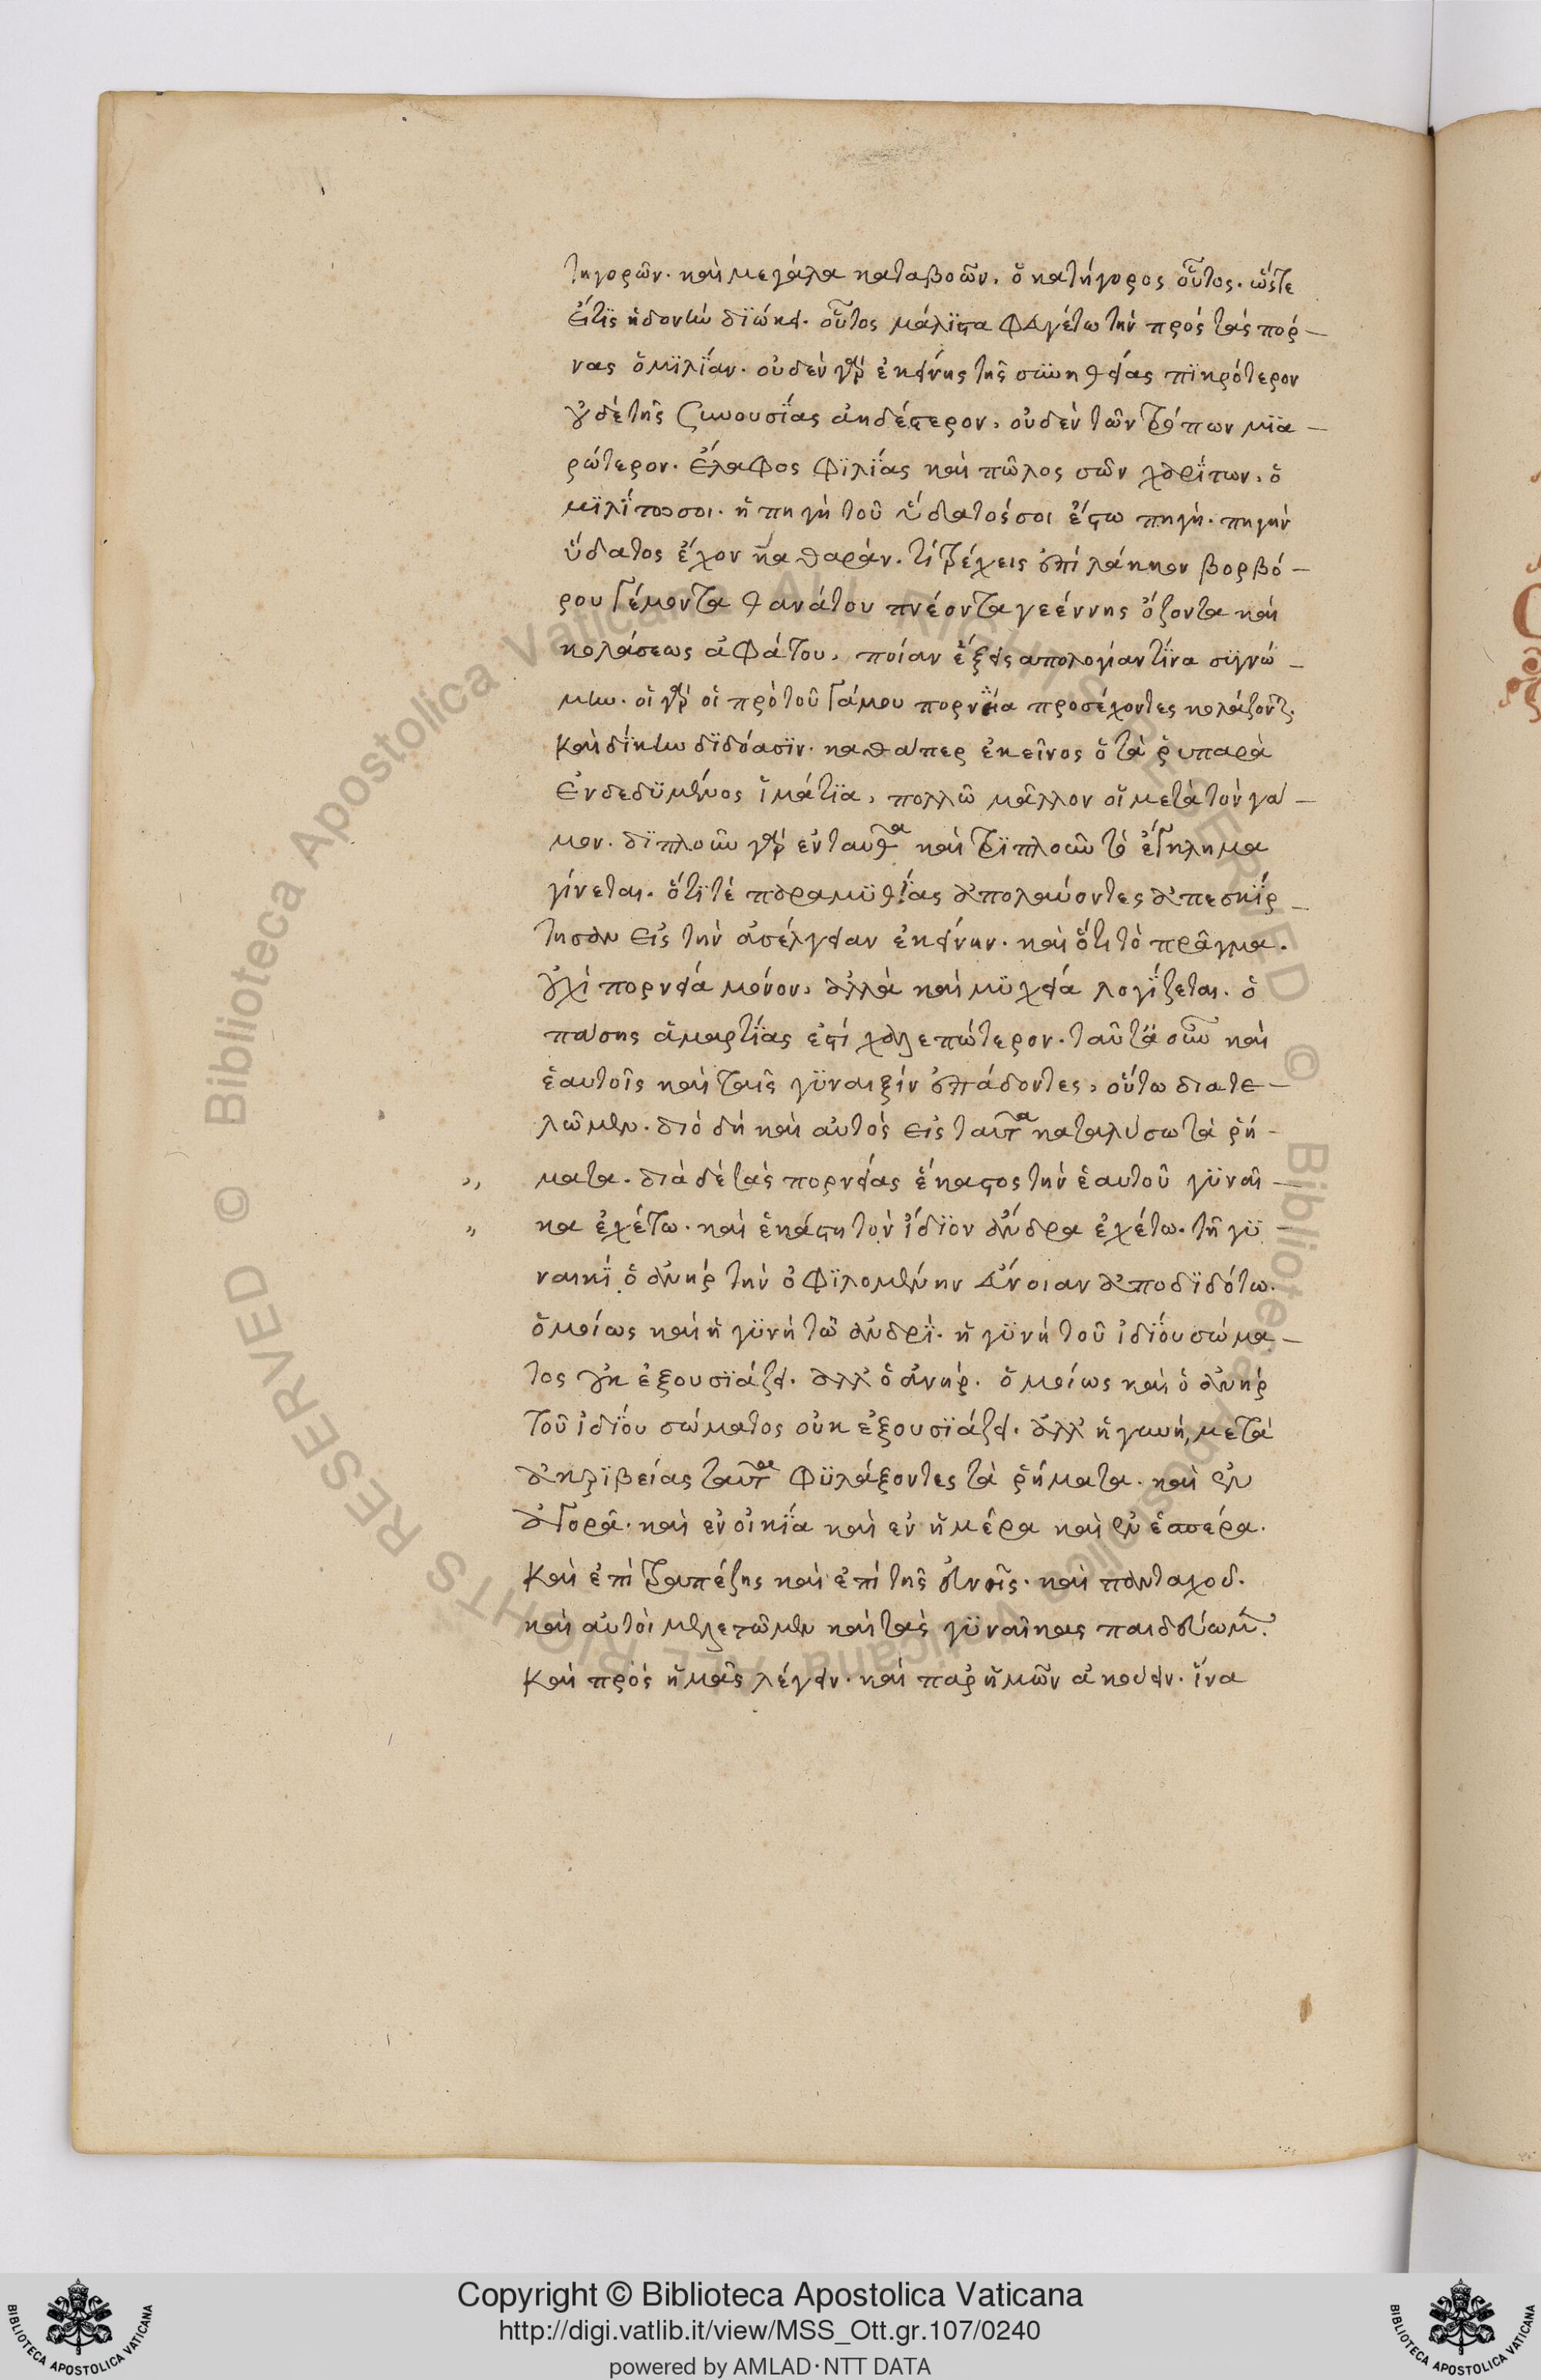 τηγορῶν. καὶ μεγάλα καταβοῶν. ὁ κατήγορος οὗτος. ὥστε
εἴ τϊς ἡδονὴν δϊώκει. οὗτος μάλϊστα φευγέτω τὴν πρὸς τὰς πόρ-
νας ὁμϊλΐαν. οὐδὲν γὰρ ἐκείνης τῆς συνηθείας πϊκρότερον
οὐδὲ τῆς συνουσΐας ἀηδέστερον. οὐδὲν τῶν τρόπων μϊα-
ρώτερον. ἔλαφος φϊλΐας καὶ πῶλος σῶν χαρΐτων. ὁ
μϊλΐτω σοι. ἡ πηγὴ τοῦ ὕδατός σοι ἔστω πηγή. πηγὴν
ὕδατος ἔχον καθαράν. τί τρέχεις ἐπὶ λάκκον βορβό-
ρου γέμοντα θανάτου πνέοντα γεέννης ὄζοντα καὶ
κολάσεως ἀφάτου. ποίαν ἕξεις απολογίαν τΐνα συγνώ-
μην. οἱ γὰρ οἱ πρὸ τοῦ γάμου πορνεία προσέχοντες κολάζοντ.
Καὶ δΐκην δϊδόασϊν. καθάπερ ἐκεῖνος ὁ τὰ ῥυπαρὰ
Ἐνδεδϋμένος ἱμάτϊα. πολλῶ μᾶλλον οἱ μετὰ τὸν γά-
μον. δϊπλοῦν γὰρ ἐνταυθα καὶ τρϊπλοῦν τὸ ἔγκλημα
γίνεται. ὅτϊ τὲ παραμϋθΐας ἀπολαύοντες ἀπεσκΐρ-
τησαν εἰς τὴν ἀσέλγειαν ἐκείνην. καὶ ὅτι τὸ πρᾶγμα.
οὐχὶ πορνεία μόνον. ἀλλὰ καὶ μϋχεία λογΐζεται. ὁ
πάσης ἁμαρτΐας ἐστὶ χαλεπώτερον. ταῦτα οὖν καὶ
ἑαυτοῖς καὶ ταῖς γϋναιξὶν ἐπάδοντες. οὕτω διατε-
λῶμεν. διὸ δὴ καὶ αὐτὸς εἰς ταῦτα καταλύσω τὰ ῥή-
ματα. διὰ δὲ τὰς πορνείας ἕκαστος τὴν ἑαυτοῦ γϋναῖ-
κα ἐχέτω. καὶ ἑκάστη τὸν ἴδϊον ἄνδρα ἐχέτω. τῆ γϋ
ναικῒ ὁ ἀνὴρ τὴν ὀφϊλομένην εὔνοιαν ἀποδϊδότω.
ὁμοίως καὶ ἡ γϋνὴ τῶ ἀνδρΐ. ἡ γϋνὴ τοῦ ἰδΐου σώμα-
τος οὐκ ἐξουσϊάζει. ἀλλ' ὁ ἀνήρ. ὁμοίως καὶ ὁ ἀνὴρ
τοῦ ἰδΐου σώματος οὐκ ἐξουσϊάζει. ἀλλ' ἡ γυνή, μετὰ
ἀκρϊβείας ταῦτα φϋλάξοντες τὰ ῥήματα. καὶ ἐν
ἀγορᾶ. καὶ ἐν οἰκΐα καὶ ἐν ἡμέρα καὶ ἐν ἑσπέρα.
Καὶ ἐπὶ τραπέζης καὶ ἐπὶ τῆς εὐνῆς. καὶ πανταχοῦ.
καὶ αὐτοὶ μελετῶμεν καὶ τὰς γϋναῖκας παιδεύωμ.
Καὶ πρὸς ἡμᾶς λέγειν. καὶ παρ' ἡμῶν ἀκούειν. ἵνα
Copyright © Biblioteca Apostolica Vaticana
http://digi.vatlib.it/view/MSS_Ott.gr.107/0240
powered by AMLAD·NTT DATA
BIBLIOTECA APOSTOLICA VATICANA
BIBLIOTECA APOSTOLICA VATICANA
© Biblioteca Apostolica Vaticana ALL RIGHTS RESERVED © Biblioteca Apostolica Vaticana ALL RIGHTS RESERVED